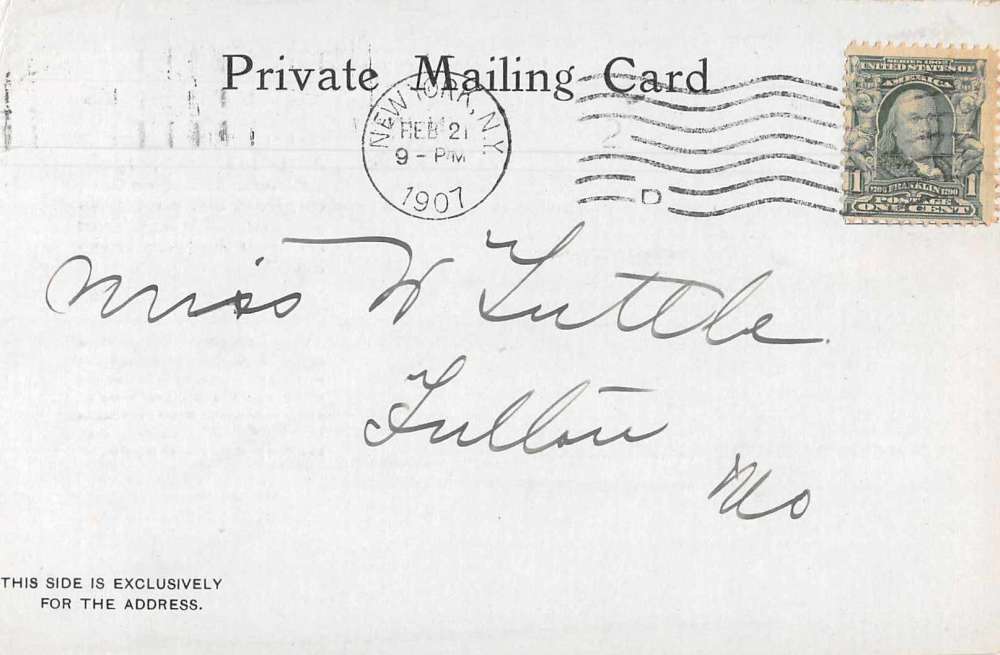 Private Mailing Card
NEW YORK, N.Y.
FEB 21
9 - PM
1907
2
D
SERIES 1902
UNITED STATES OF
AMERICA
1 FRANKLIN 1
POSTAGE
ONE CENT
Miss W Tuttle
Fulton
Mo
THIS SIDE IS EXCLUSIVELY
FOR THE ADDRESS.